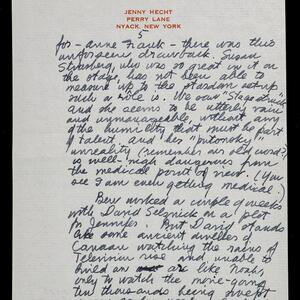 JENNY HECHT
PERRY LANE
NYACK, NEW YORK
5
for - Anne Frank - there was this
unforseen drawback. Susan
Strasberg, who was so great in it on
the stage, has not been able to
measure up to the stardom set-up
such a role is. We our "Stage Struck"
and she seems to be utterly
and unmanageable, without any
of the humility that must be part
of talent, and her "pitowsky"
unreality (remember our old word?)
is well-nigh dangerous from
the medical point of view. (You
see I am even getting medical.)
Ben worked a couple of weeks
with David Selznick on a plot
for Jennifer. But David stands
like some ancient dwellers of
Canaan watching the rains of
Television rise and unable to
build an ark like Noah,
only to watch the movie-going
ten thousands being swept